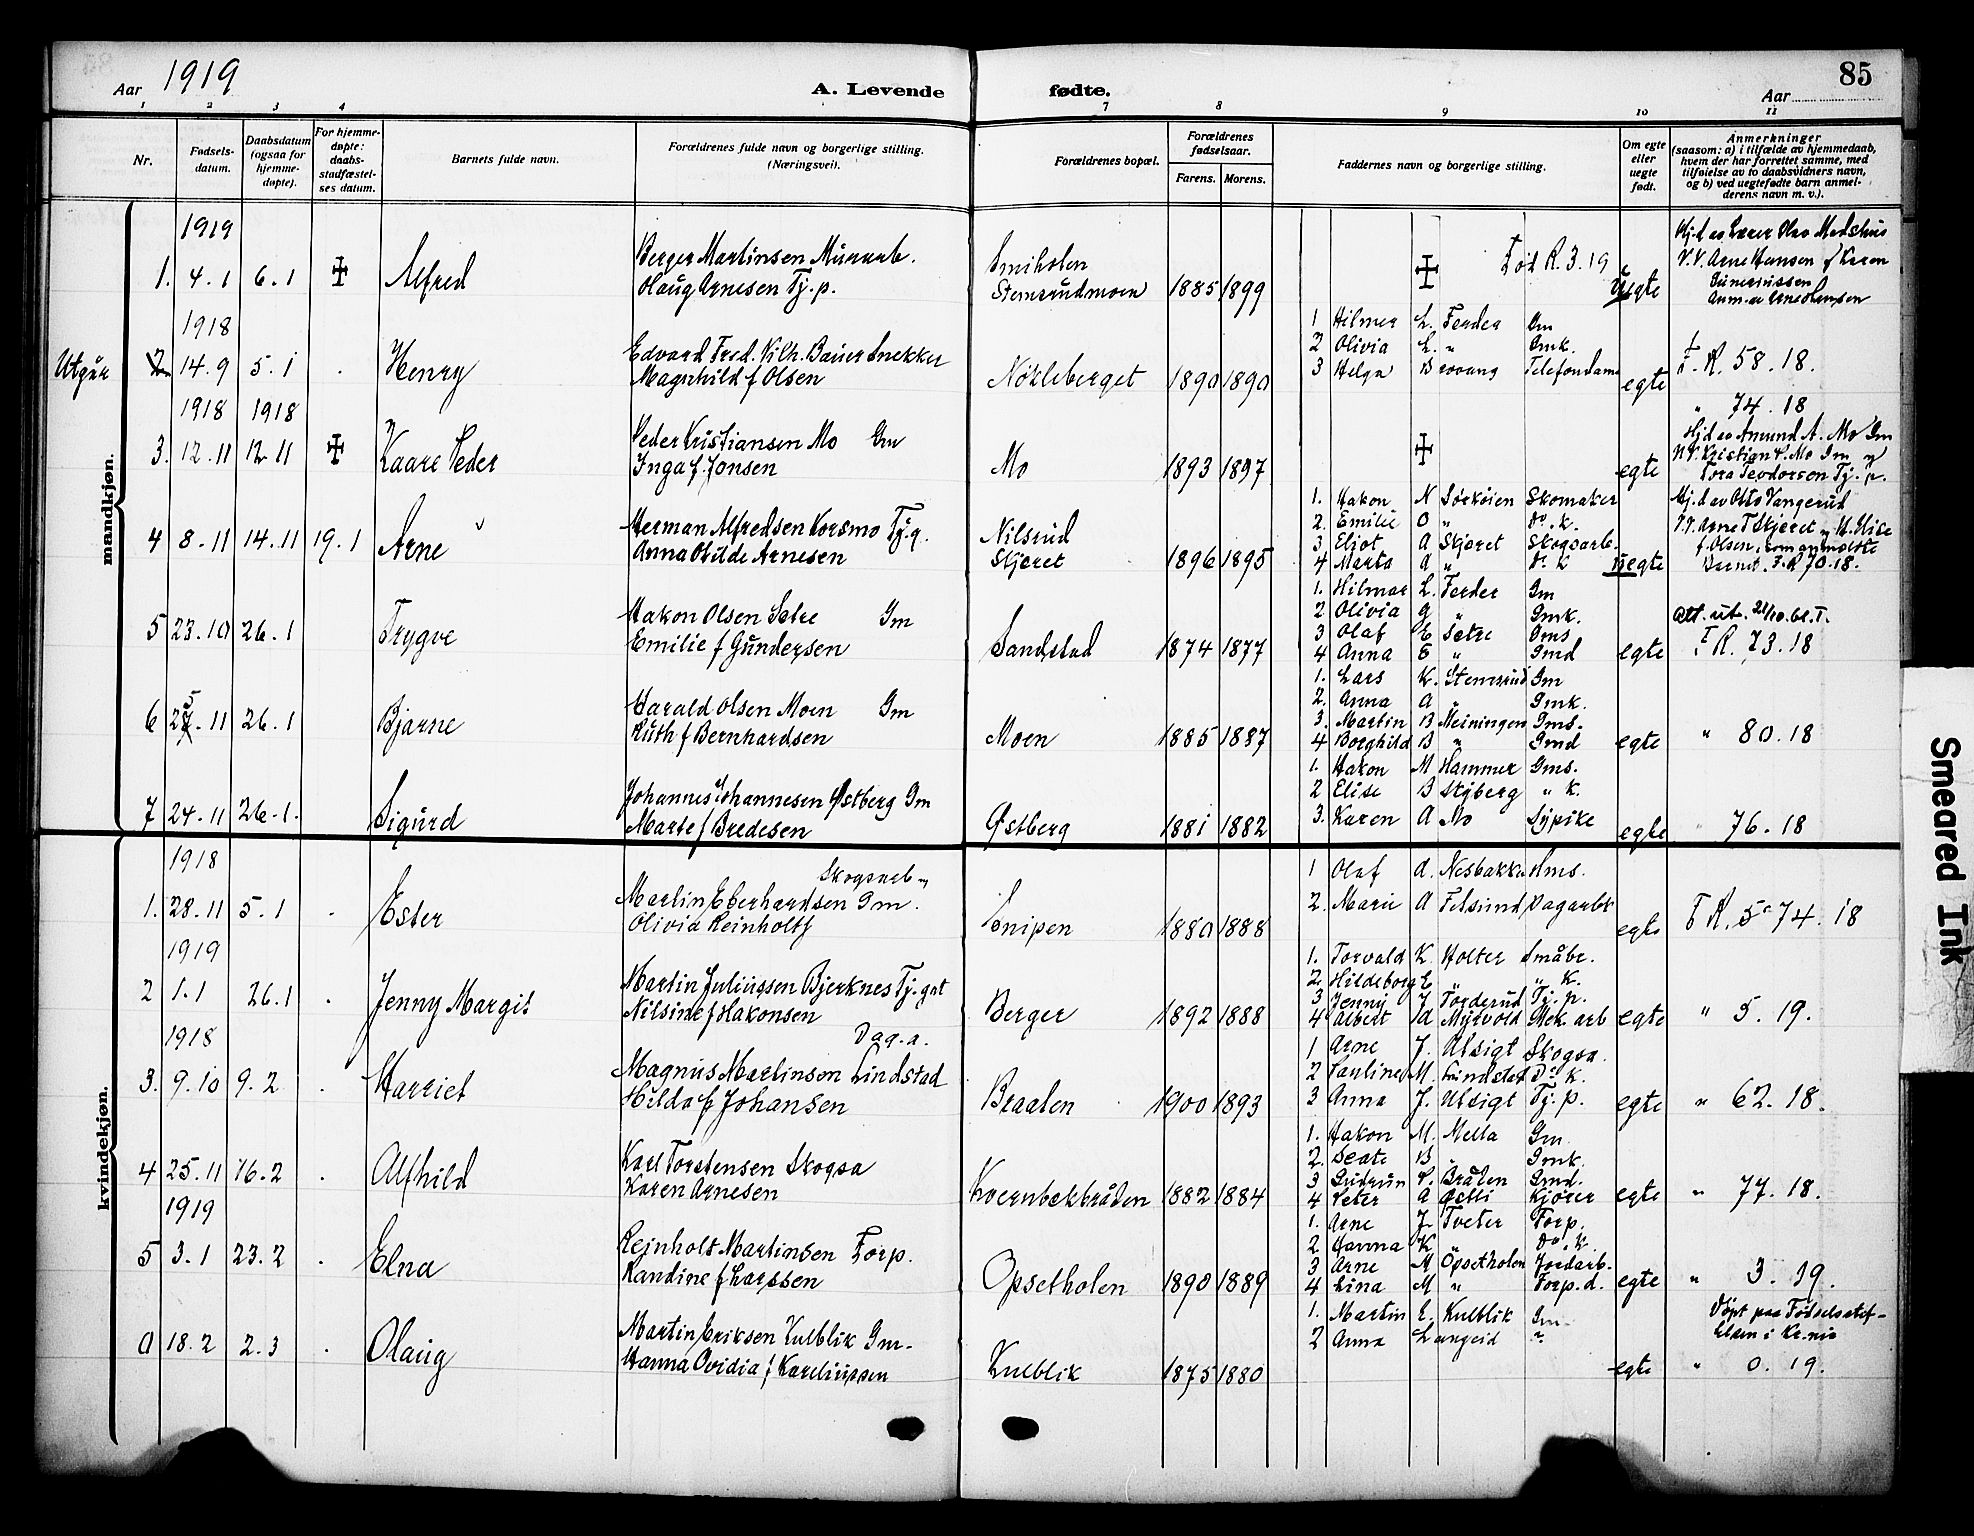 Aar 1919
A. Levende fødte.
Aar
85
1 2 3 4 7 8 9 10 11
Nr.
Fødsels-
datum.
Daabsdatum
(ogsaa for
hjemme-
døpte).
For hjemme-
døpte:
daabs-
stadfæstel-
ses datum.
Barnets fulde navn.
Forældrenes fulde navn og borgerlige stilling.
(Næringsvei).
Forældrenes bopæl.
Forældrenes
fødselsaar.
Farens. Morens.
Faddernes navn og borgerlige stilling.
Om egte
eller
uegte
født.
Anmerkninger
(saasom: a) i tilfælde av hjemmedaab,
hvem der har forrettet samme, med
tilføielse av to daabsvidners navn,
og b) ved uegtefødte barn anmel-
derens navn m. v.).
mandkjøn.
1919
1. 4.1 6.1 Alfred
Berger Martinsen Murarb.
Olaug Arnesen Tj.p.
Stemsrudmoen 1885 1899
R. 3.19
Uegte
1918
Utgår 2 14.9 5.1 Henry
Edvard Fred. Vilh. Bauer Snekker
Magnhild f Olsen
Nökleberget 1890 1890
1 Hilmer L. Ferder Gm
2 Olivia L. " Gmk.
3 Helga Brovang Telefondame
egte
F. R. 58.18.
1918 1918
3. 12.11 12.11 Kaare Peder
Peder Kristiansen Mo Gm
Inga f. Jonsen
Mo 1893 1897
egte
" 74.18
Hjd av Amund A. Mo Gm
V.V. Kristian P. Mo Gm og
Tora Teodorsen Tj.p.
4 8.11 14.11 19.1 Arne
Herman Alfredsen Korsmo Tj.g.
Anna Otilde Arnesen
Nilsrud
Skjæret
1896 1895
1. Hakon N Sörkoien Skomaker
2. Emilie O " Do. k.
3. Eliot A Skjæret Skogsarb.
4 Marta A " Do k
uegte
Hj.d av Otto Vangerud
V.V. Arne T Skjæret
f. Olsen, som anmeldte
Barnet. F.R 70.18.
5 23.10 26.1 Trygve
Hakon Olsen Sætre Gm
Emilie f Gundersen
Sandstad 1874 1877
1. Hilmar L. Ferder Gm
2 Olivia G " Gmk.
3 Olaf E Sætre Gms
4 Anna E " Gmd
egte
Att. ut. 21/10.61.T.
F R. 73.18
6 25.11 26.1 Bjarne
Harald Olsen Moen Gm
Ruth f Bernhardsen
Moen 1885 1887
1. Lars K. Stemsrud Gm
2. Anna A " Gmk.
3. Martin B Meiningen Gms.
4 Borghild B " Gmd
egte
" 80.18
7 24.11 26.1. Sigurd
Johannes Johannesen Østberg Gm
Marte f Bredesen
Østberg 1881 1882
1. Hakon M Hammer Gms.
2 Elise B Styberg " K.
3. Karen A Mo Sypike
egte
" 76.18
kvindekjøn.
1918
1. 28.11 5.1 Ester
Skogsarb
Martin Eberhardsen Gm.
Olivia Reinholtf
Snipen 1880 1888
1 Olaf A. Nesbakken Hms.
2. Marie A Dagarbk
egte
F R. 74.18
1919
2 1.1 26.1 Jenny Margit
Martin Juliussen Bjerknes Tj.gut
Nilsine f Hakonsen
Berger 1892 1888
1. Torvald K Holter Småbr.
2. Hildeborg E " " K.
3 Jenny J Torderud Tj. p.
4 Albert Myrvold Mek. arb
egte
" 5.19.
1918
3. 9.10 9.2 Harriet
Dag.a.
Magnus Martinsen Lindstad
Hilda f Johansen
Braaten 1900 1893
1 Arne J. Utsigt Skogsa.
2 Pauline M. Lundstad Do K.
3 Anna J. Utsigt Tj. p.
egte
" 62.18.
4 25.11 16.2 Alfhild
Karl Torstensen Skogsa
Karen Arnesen
Kvernbekbråten 1882 1884
1. Hakon M. Mella Gm
2. Beate B " Gmk.
3 Gudrun P. Bråten Gmd.
4 Peter A Kjører
egte
" 77.18.
1919
5 3.1 23.2 Elna
Reinholt Martinsen Forp.
Randine f Larssen
Opsetholen 1890 1889
1. Arne J Tveter Forp.
2 Hanna K " Do. k
3 Arne M Opsetholen Jordarb.
4 Lina M " Forp. d.
egte
" 3.19.
0 18.2 2.3 Olaug
Martin Eriksen Kulblik Gm.
Hanna Ovidia f Kareliussen
Kulblik 1875 1880
1. Martin E. Kulblik Gm
2 Anna Langeid "
egte
Döpt paa Fødselsstif-
telsen i Kr.nia
" 0.19.
Smeared Ink